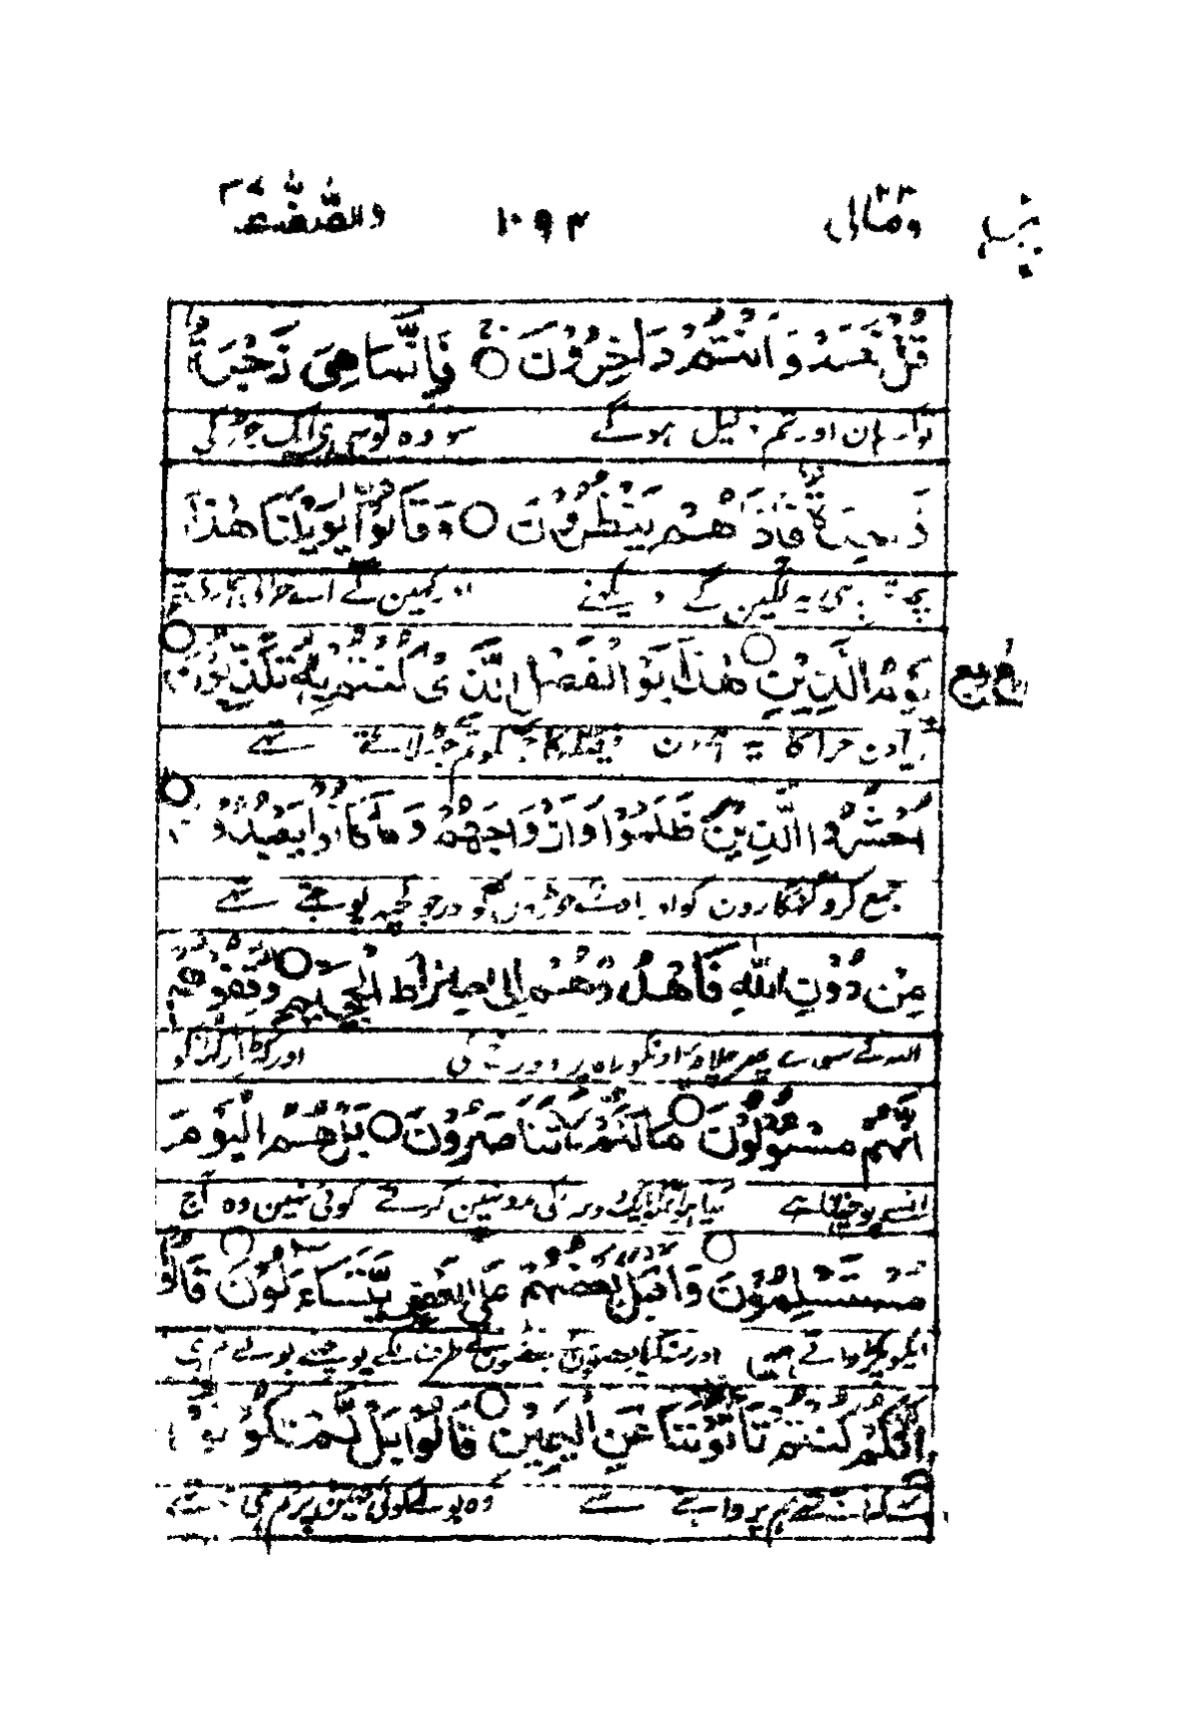 ومالی ٢٣ ١٠٩٢ والصّٰفّٰت ٣٧
قُلْ نَعَمْ وَاَنْتُمْ دَاخِرُوْنَ ○ فَاِنَّمَا هِیَ زَجْرَةٌ
تو کہہ ہان اور تم ذلیل ہوگے سو وہ تو یہی ایک جھڑکی
فَاِذَا هُمْ یَنْظُرُوْنَ ○ وَقَالُوْا یٰوَیْلَنَا هٰذَا
لگین گے دیکہنے اور کہین گے اے خرابی ہماری یہ
یَوْمُ الدِّیْنِ ○ هٰذَا یَوْمُ الْفَصْلِ الَّذِیْ كُنْتُمْ بِهٖ تُكَذِّبُوْنَ ○
آیا دن جزا کا یہ ہے دن فیصلہ کا جسکو تم جھٹلاتے تھے
اُحْشُرُوا الَّذِیْنَ ظَلَمُوْا وَاَزْوَاجَهُمْ وَمَا كَانُوْا یَعْبُدُوْنَ ○
جمع کرو گنہگارون کو اور جو کچھ پوجتے تھے
مِنْ دُوْنِ اللّٰهِ فَاهْدُوْهُمْ اِلٰی صِرَاطِ الْجَحِیْمِ ○ وَقِفُوْهُمْ
اللہ کے سوا پھر چلاؤ اونکو راہ پر دوزخ کی اور کھڑا رکھو انکو
اِنَّهُمْ مَسْئُوْلُوْنَ ○ مَا لَكُمْ لَا تَنَاصَرُوْنَ ○ بَلْ هُمُ الْیَوْمَ
انسے پوچھنا ہے کیا ہوا تمکو ایک دوسرے کی مدد نہین کرتے کوئی نہین وہ آج
مُسْتَسْلِمُوْنَ ○ وَاَقْبَلَ بَعْضُهُمْ عَلٰی بَعْضٍ یَّتَسَآءَلُوْنَ ○ قَالُوْا
اور منہ کیا بعضون نے بعضون کی طرف لگے پوچھنے بولے تم ہی
اِنَّكُمْ كُنْتُمْ تَاْتُوْنَنَا عَنِ الْیَمِیْنِ ○ قَالُوْا بَلْ لَّمْ تَكُوْنُوْا
تھے وہ بولے کوئی نہین پر تم ہی نہ تھے